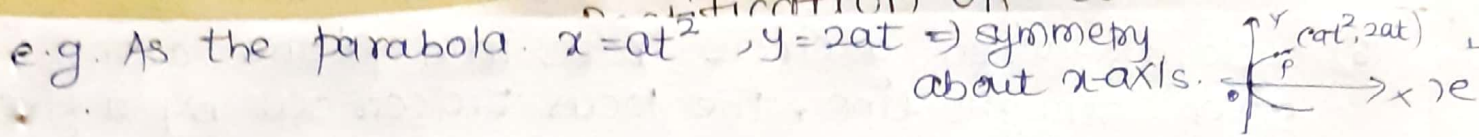 e.g. As the parabola. x=at², y=2at ⇒ symmetry
about x-axis.
Y
(at², 2at)
P
o
x